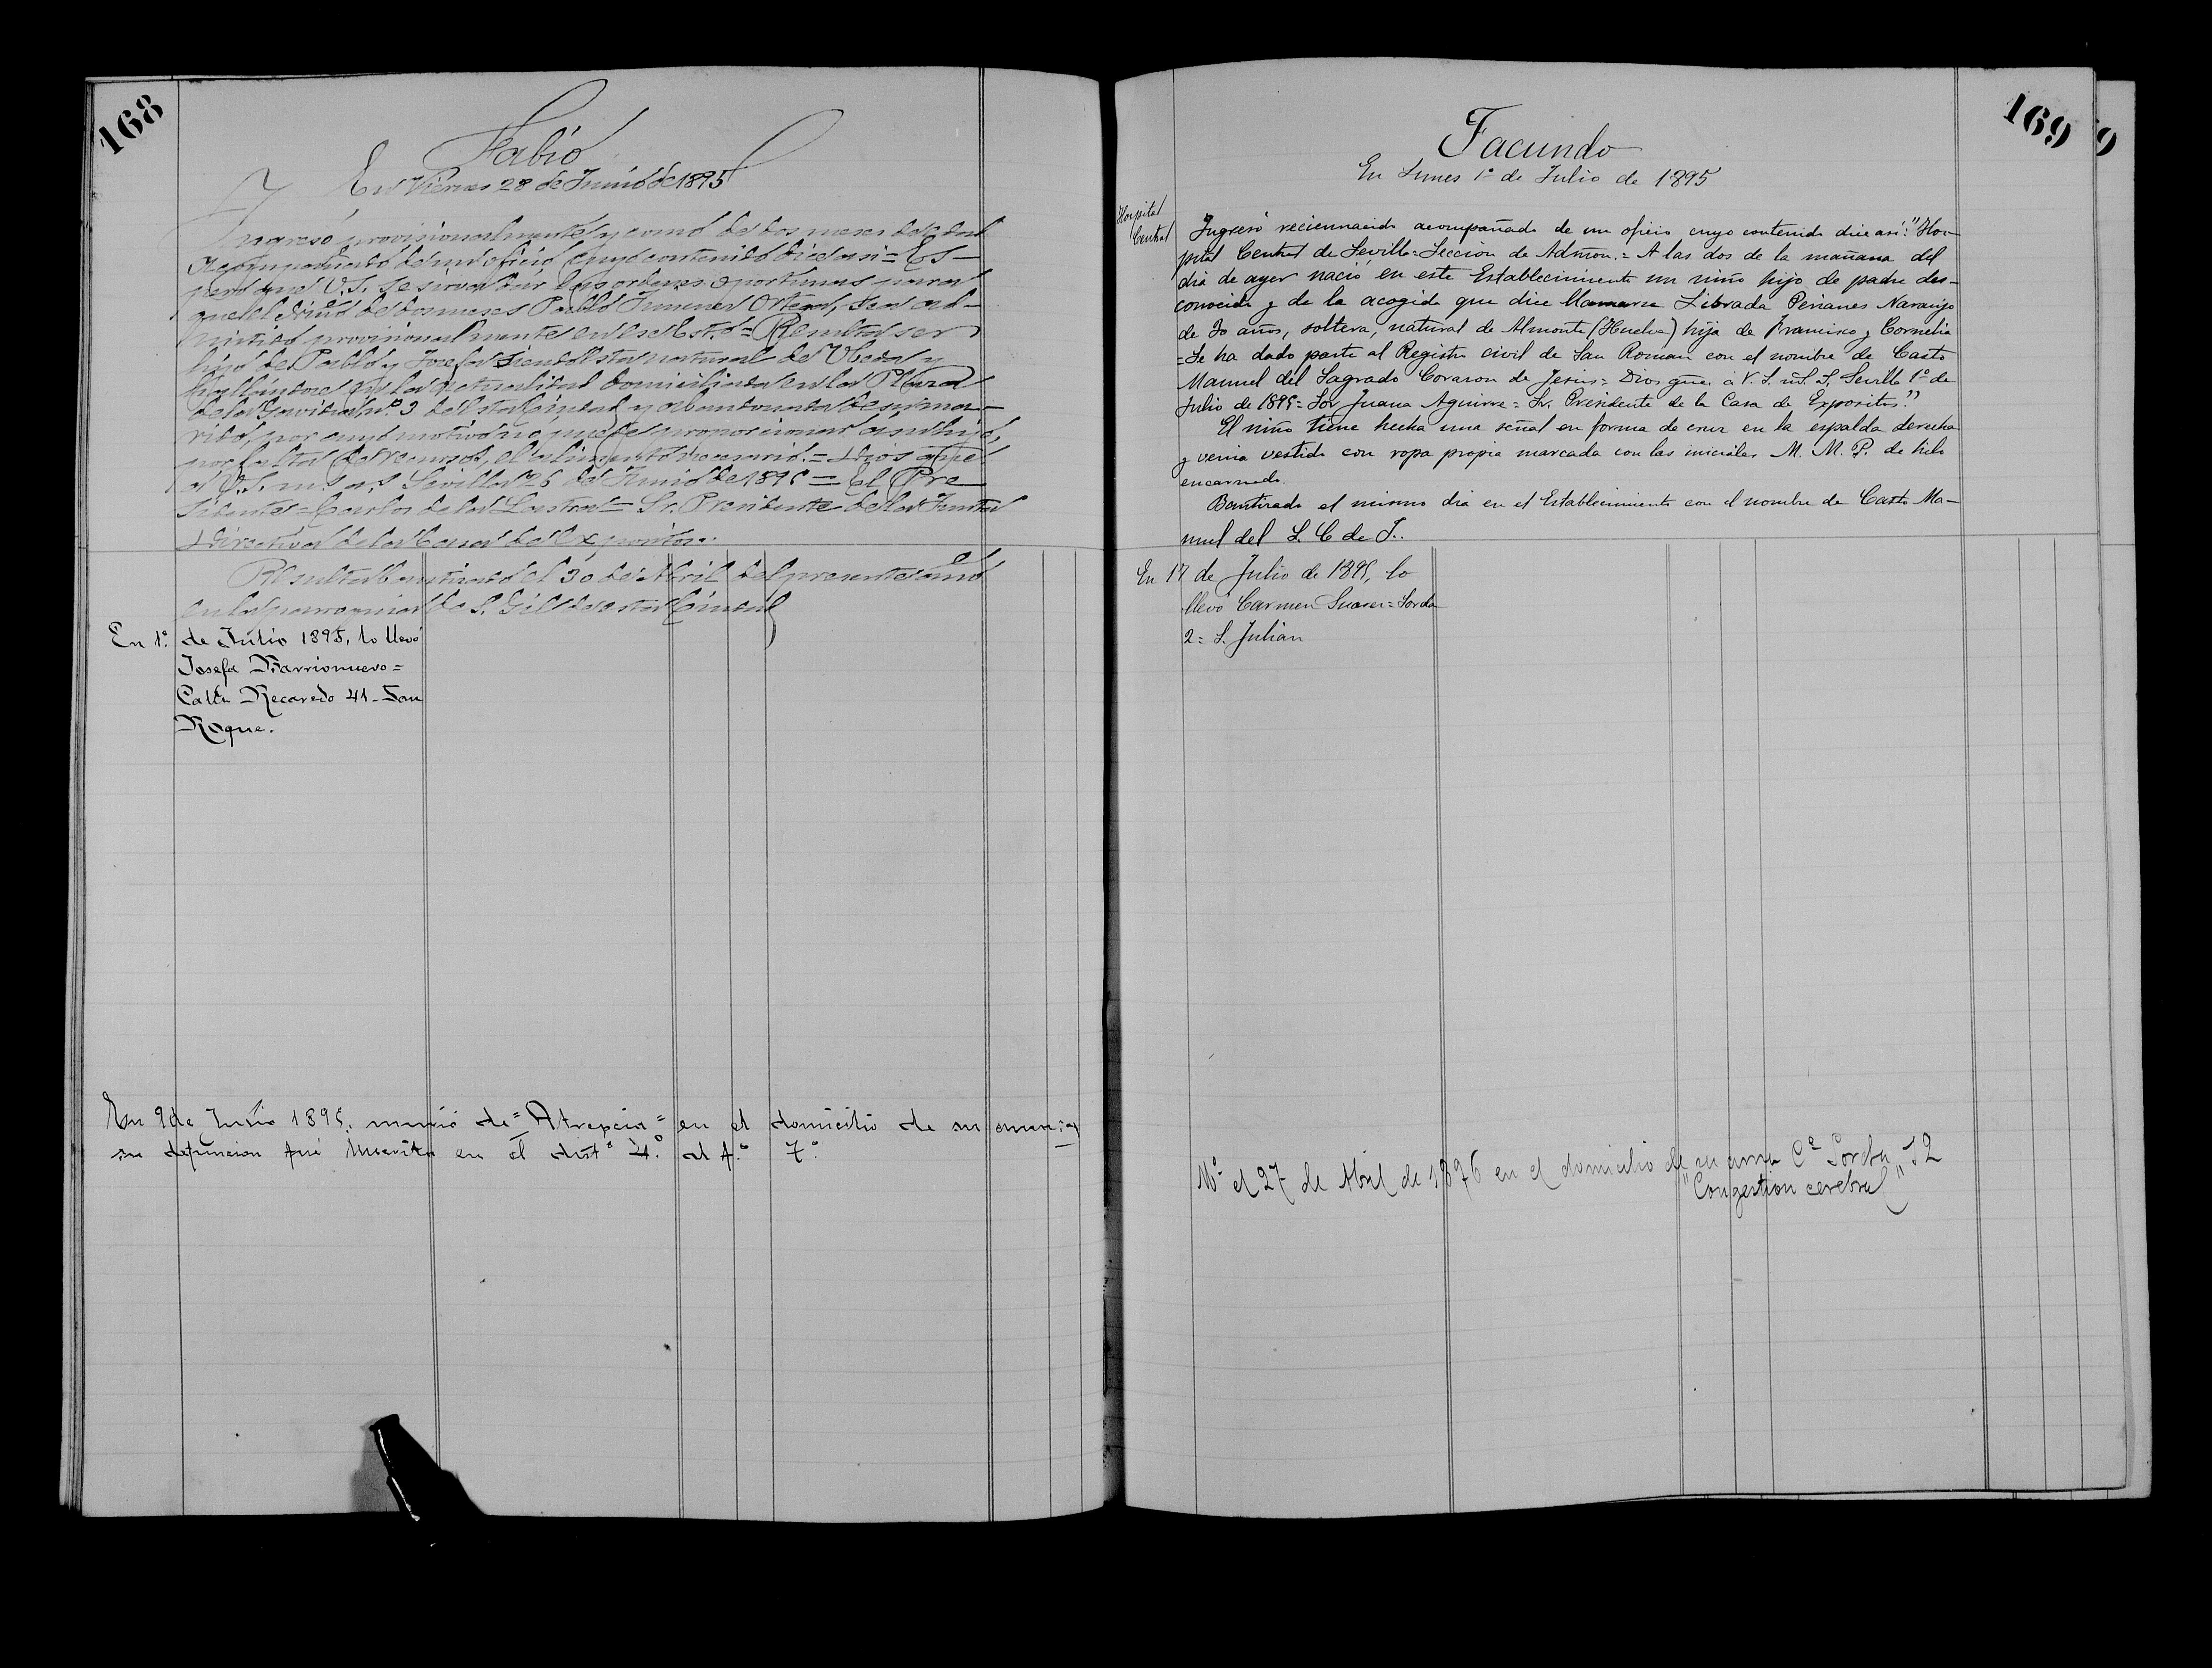 168
Fabio
En Viernes 28 de Junio de 1895
Ingresó provisionalmente y como de dos meses de edad
acompañado de un oficio cuyo contenido dice así = Es-
pero que V.S. se sirva dar las ordenes oportunas para
que el niño de dos meses Pablo Jimenez Ortega, sea ad-
mitido provisionalmente en ese Est.º = Resulta ser
hijo de Pablo y Josefa siendo esta natural de Ubeda y
hallandose en la actualidad domiciliada en la Plaza
de la Gavidia nº 3 de esta Ciudad y abandonada de su ma-
rido, por cuyo motivo no puede proporcionar a su hijo,
por falta de recursos, el alimento necesario. = Dios gue.
a V.S. m. a.s Sevilla 26 de Junio de 1895 = El Pre-
sidente = Carlos de la Lastra = Sr. Presidente de la Junta
Directiva de la Casa de Expositos.
Resulta bautizado el 30 de Abril del presente año
en la parroquia de S. Gil de esta Ciudad
En 1º. de Julio 1895, lo llevó
Josefa Barrionuevo =
Calle Recaredo 41 - San
Roque.
En 9 de Julio 1895, murió de = Atrepcia = en el domicilio de su ama; y
su defuncion fué inscrita en el distº 4.º al f.º 7.º
169
Facundo
En Lunes 1º de Julio de 1895
Hospital
Central
Ingresó reciennacido acompañado de un oficio cuyo contenido dice asi: "Hos-
pital Central de Sevilla = Seccion de Admon. = A las dos de la mañana del
dia de ayer nació en este Establecimiento un niño hijo de padre des-
conocido y de la acogida que dice llamarse Librada Perianes Naranjo
de 30 años, soltera, natural de Almonte (Huelva) hija de Francisco y Cornelia
= Se ha dado parte al Registro civil de San Roman con el nombre de Casto
Manuel del Sagrado Corazon de Jesus = Dios gue. á V. S. m. S. Sevilla 1º de
Julio de 1895 = Sor Juana Aguirre = Sr. Presidente de la Casa de Expositos."
El niño tiene hecha una señal en forma de cruz en la espalda derecha
y venia vestido con ropa propia marcada con las iniciales M. M. P. de hilo
encarnado.
Bautizado el mismo dia en el Establecimiento con el nombre de Casto Ma-
nuel del S. C. de J..
En 17 de Julio de 1895, lo
llevó Carmen Suarez = Sorda
2 = S. Julian
Mº el 27 de Abril de 1896 en el domicilio de su ama Cª Sorda 12
"Congestion cerebral"